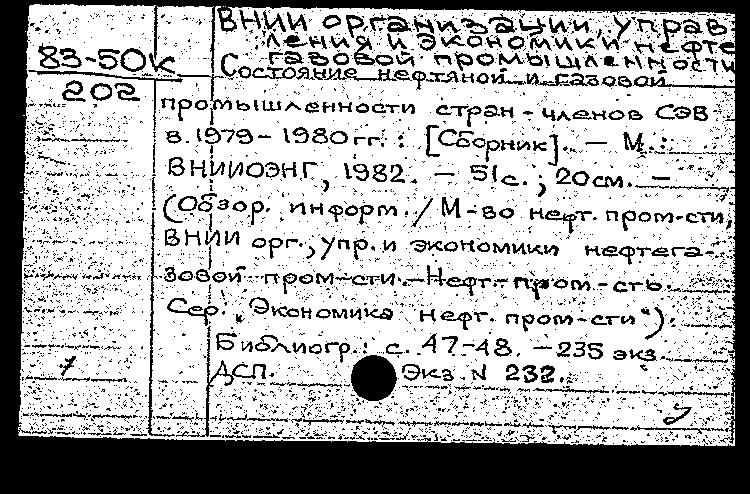 ВНИИ организации, управ
ления и экономики нефте
газовой промышленности
83-50к
202
Состояние нефтяной и газовой
промышленности стран-членов СЭВ
в 1979-1980гг.: [Сборник]. - М.:
ВНИИОЭНГ, 1982. - 51с.; 20см. -
(Обзор. информ. / М-во нефт. пром-сти,
ВНИИ орг., упр. и экономики нефтега-
зовой пром-сти. Нефт. пром-сть.
Сер. "Экономика нефт. пром-сти").
Библиогр.: с. 47-48. - 235 экз.
ДСП. Экз. N 232.